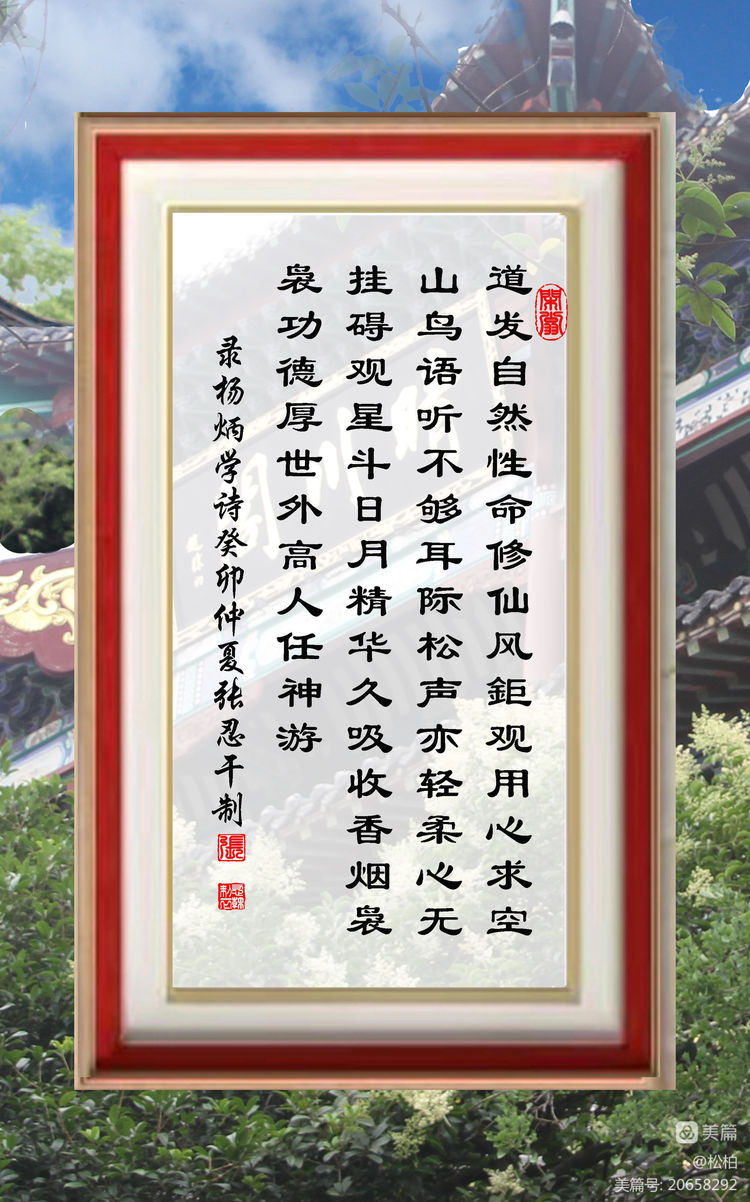 道发自然性命修仙风鉅观用心求空
山鸟语听不够耳际松声亦轻柔心无
挂碍观星斗日月精华久吸收香烟袅
袅功德厚世外高人任神游
录杨炳学诗癸卯仲夏张忍干制
張
美篇
@松柏
美篇号: 20658292